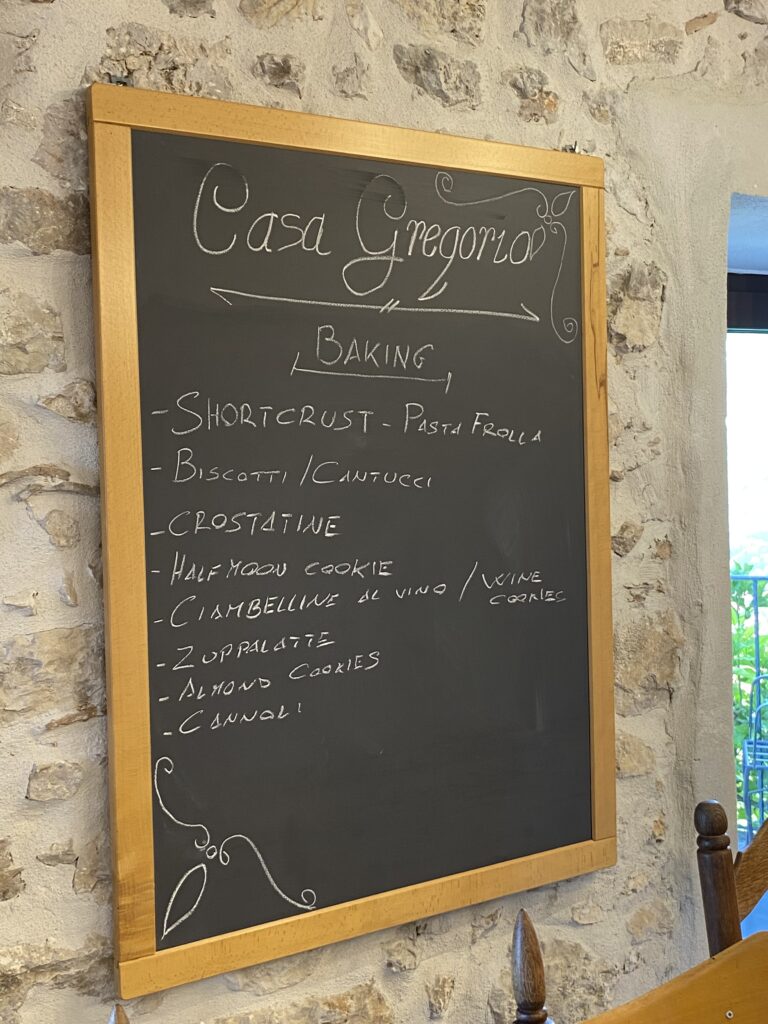 Casa Gregorio
BAKING
- SHORTCRUST - PASTA FROLLA
- BISCOTTI / CANTUCCI
- CROSTATINE
- HALFMOON COOKIE
- CIAMBELLINE AL VINO / WINE COOKIES
- ZUPPALATTE
- ALMOND COOKIES
- CANNOLI